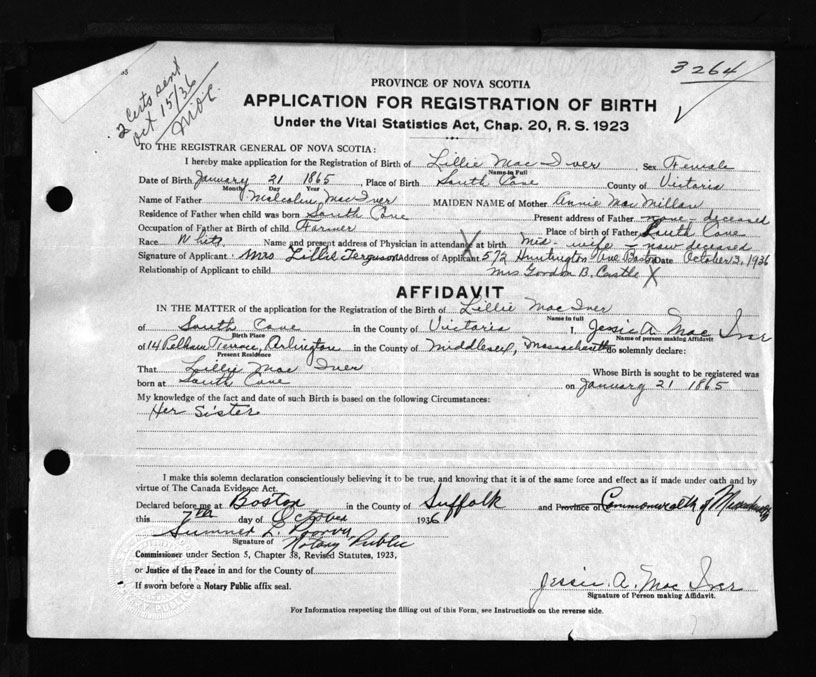 3264
2 Certs sent
Oct 15/36
PROVINCE OF NOVA SCOTIA
APPLICATION FOR REGISTRATION OF BIRTH
Under the Vital Statistics Act, Chap. 20, R. S. 1923
TO THE REGISTRAR GENERAL OF NOVA SCOTIA:
I hereby make application for the Registration of Birth of Lillie Mac Iver Sex Female
Name in Full
Date of Birth January 21 1865, Place of Birth South Cove County of Victoria
Month Day Year
Name of Father Malcolm MacIver MAIDEN NAME of Mother Annie Mac Millan
Residence of Father when child was born South Cove Present address of Father none - deceased
Occupation of Father at Birth of child Farmer Place of birth of Father South Cove
Race White Name and present address of Physician in attendance at birth Mid-wife - now deceased
Signature of Applicant Mrs Lillie Ferguson Address of Applicant 572 Huntington Ave Boston Date October 3, 1936
Relationship of Applicant to child Mrs Gordon B. Castle X
AFFIDAVIT
IN THE MATTER of the application for the Registration of the Birth of Lillie Mac Iver
Name in full
of South Cove in the County of Victoria I, Jessie A. Mac Iver
Birth Place Name of person making Affidavit
of 14 Pelham Terrace, Arlington in the County of Middlesex, Massachusetts do solemnly declare:
Present Residence
That Lillie Mac Iver Whose Birth is sought to be registered was
born at South Cove on January 21 1865
My knowledge of the fact and date of such Birth is based on the following Circumstances:
Her Sister
I make this solemn declaration conscientiously believing it to be true, and knowing that it is of the same force and effect as if made under oath and by
virtue of The Canada Evidence Act.
Declared before me at Boston in the County of Suffolk and Province of Commonwealth of Massachusetts
this 7th day of October 1936
Sumner L.
Signature of Notary Public
Commissioner under Section 5, Chapter 38, Revised Statutes, 1923,
or Justice of the Peace in and for the County of
If sworn before a Notary Public affix seal.
Jessie A. Mac Iver
Signature of Person making Affidavit.
For Information respecting the filling out of this Form, see Instructions on the reverse side.